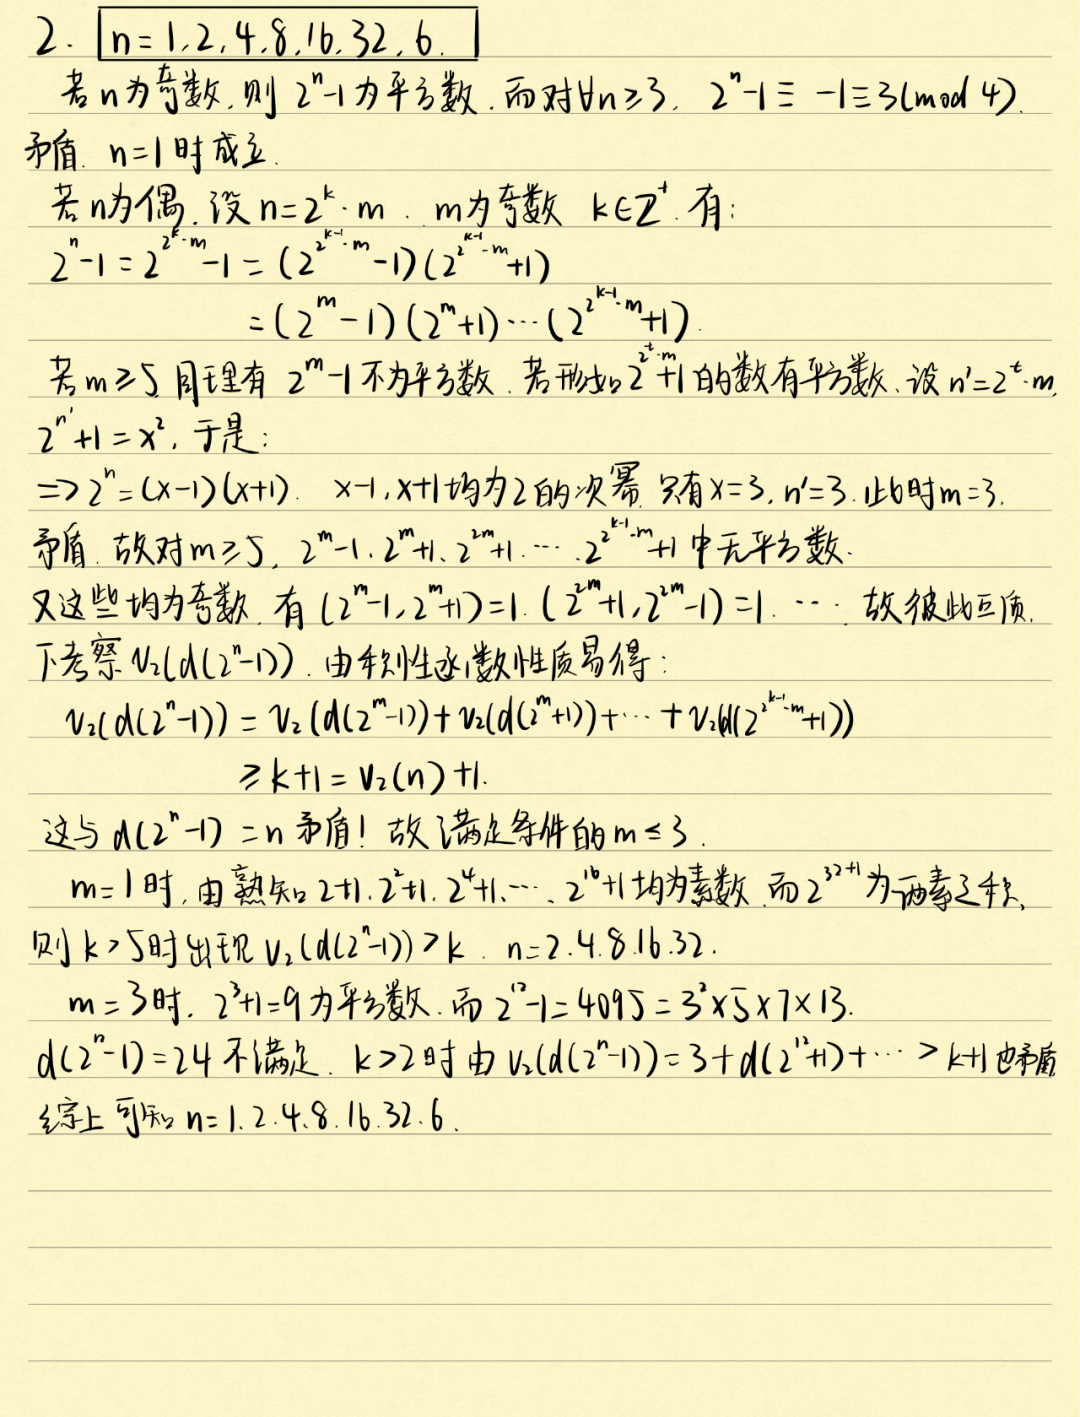 2. n=1,2,4,8,16,32,6.
若n为奇数,则 2^n-1为平方数.而对∀n≥3, 2^n-1≡-1≡3(mod 4).
矛盾. n=1时成立.
若n为偶,设n=2^k·m. m为奇数 k∈Z^+.有:
2^n-1=2^{2^k·m}-1=(2^{2^{k-1}·m}-1)(2^{2^{k-1}·m}+1)
=(2^m-1)(2^m+1)···(2^{2^{k-1}·m}+1).
若m≥5,同理有 2^m-1不为平方数.若形如2^{2^t·m}+1的数有平方数,设n'=2^t·m,
2^{n'}+1=x^2,于是:
=>2^n=(x-1)(x+1). x-1,x+1均为2的次幂.只有x=3,n'=3.此时m=3.
矛盾.故对m≥5, 2^m-1、2^m+1、2^{2m}+1.···、2^{2^{k-1}·m}+1中无平方数.
又这些均为奇数,有(2^m-1,2^m+1)=1.(2^{2m}+1,2^{2m}-1)=1.···.故彼此互质.
下考察V_2(d(2^n-1)).由积性函数性质易得:
V_2(d(2^n-1))=V_2(d(2^m-1))+V_2(d(2^m+1))+···+V_2(d(2^{2^{k-1}·m}+1))
≥k+1=V_2(n)+1.
这与d(2^n-1)=n矛盾!故满足条件的m≤3.
m=1时,由熟知2+1.2^2+1.2^4+1.···、2^{16}+1均为素数.而2^{32+1}为两素之积,
则k>5时出现V_2(d(2^n-1))>k. n=2.4.8.16.32.
m=3时. 2^3+1=9为平方数.而2^{12}-1=4095=3^2×5×7×13.
d(2^n-1)=24不满足. k>2时由V_2(d(2^n-1))=3+d(2^{12}+1)+···>k+1也矛盾
综上可知n=1.2.4.8.16.32.6.